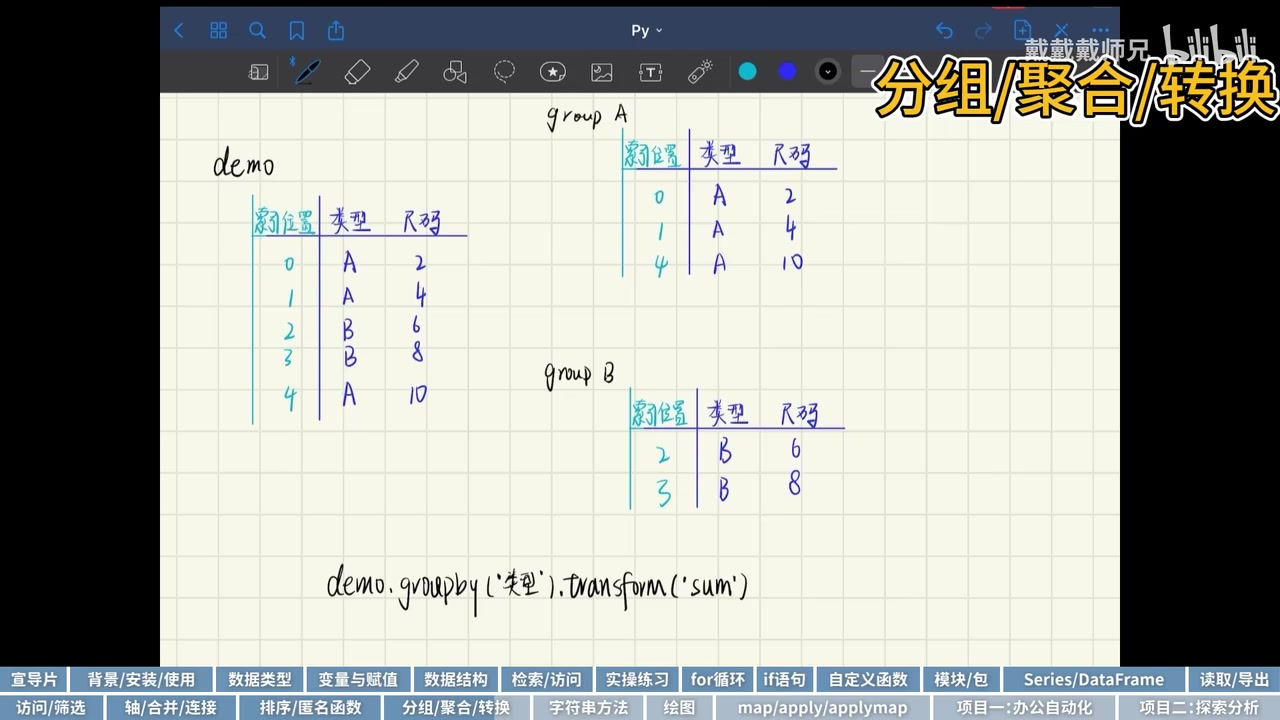 Py
戴戴戴师兄 bilibili
分组/聚合/转换
group A
索引位置 类型 尺码
0 A 2
1 A 4
4 A 10
demo
索引位置 类型 尺码
0 A 2
1 A 4
2 B 6
3 B 8
4 A 10
group B
索引位置 类型 尺码
2 B 6
3 B 8
demo.groupby('类型').transform('sum')
宣导片 背景/安装/使用 数据类型 变量与赋值 数据结构 检索/访问 实操练习 for循环 if语句 自定义函数 模块/包 Series/DataFrame 读取/导出
访问/筛选 轴/合并/连接 排序/匿名函数 分组/聚合/转换 字符串方法 绘图 map/apply/applymap 项目一:办公自动化 项目二:探索分析